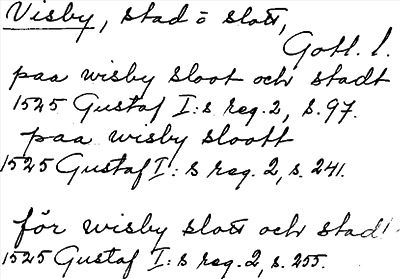 Visby, stad o slott,
Gotl. l.
paa wisby sloot och stadt
1525 Gustaf I:s reg. 2, s. 97.
paa wisby sloott
1525 Gustaf I:s reg. 2, s. 241.
för wisby slott och stad
1525 Gustaf I:s reg. 2, s. 255.